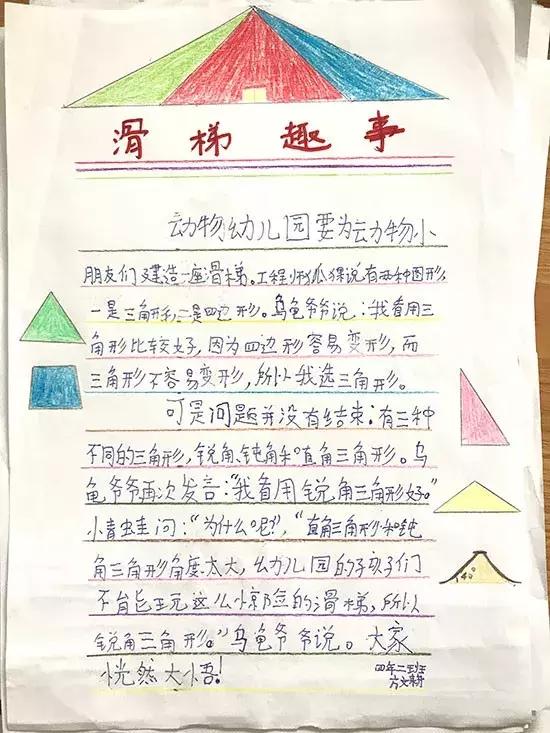 滑梯趣事
动物幼儿园要为动物小
朋友们建造一座滑梯。工程师狐狸说有两种图形,
一是三角形,二是四边形。乌龟爷爷说:我看用三
角形比较好,因为四边形容易变形,而
三角形不容易变形,所以我选三角形。
可是问题并没有结束:有三种
不同的三角形,锐角、钝角和直角三角形。乌
龟爷爷再次发言:“我看用锐角三角形好。”
小青蛙问:“为什么呢?”,“直角三角形和钝
角三角形角度太大,幼儿园的孩子们
不能玩这么惊险的滑梯,所以
锐角三角形。”乌龟爷爷说。大家
恍然大悟!
140°
四年二班
方文